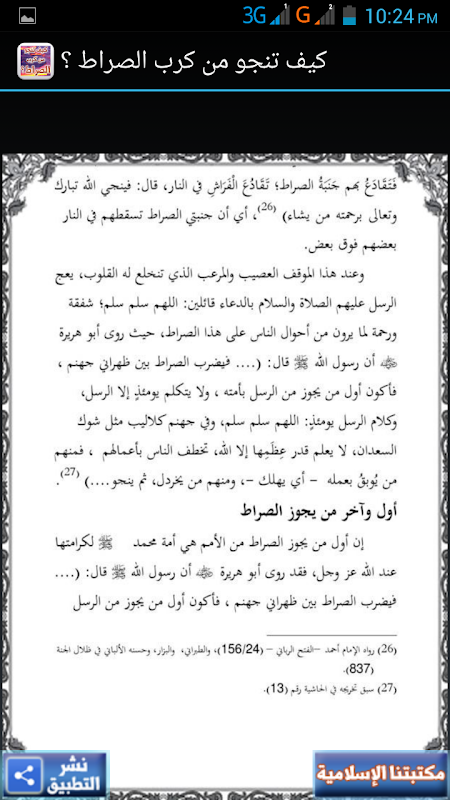 3G G 10:24 PM
كيف تنجو من كرب الصراط ؟
فَتَقَادَعُ بهم جَنَبَةُ الصراط؛ تَقَادُعَ الْفَرَاشِ في النار، قال: فينجي الله تبارك
وتعالى برحمته من يشاء) (26)، أي أن جنبتي الصراط تسقطهم في النار
بعضهم فوق بعض.
وعند هذا الموقف العصيب والمرعب الذي تنخلع له القلوب، يعج
الرسل عليهم الصلاة والسلام بالدعاء قائلين: اللهم سلم سلم؛ شفقة
ورحمة لما يرون من أحوال الناس على هذا الصراط، حيث روى أبو هريرة
أن رسول الله ﷺ قال: (.... فيضرب الصراط بين ظهراني جهنم ،
فأكون أول من يجوز من الرسل بأمته ، ولا يتكلم يومئذٍ إلا الرسل،
وكلام الرسل يومئذٍ: اللهم سلم سلم، وفي جهنم كلاليب مثل شوك
السعدان، لا يعلم قدر عِظَمِها إلا الله، تخطف الناس بأعمالهم ، فمنهم
من يُوبقُ بعمله – أي يهلك -، ومنهم من يخردل، ثم ينجو....) (27).
أول وآخر من يجوز الصراط
إن أول من يجوز الصراط من الأمم هي أمة محمد ﷺ لكرامتها
عند الله عز وجل، فقد روى أبو هريرة أن رسول الله ﷺ قال: (....
فيضرب الصراط بين ظهراني جهنم ، فأكون أول من يجوز من الرسل
(26) رواه الإمام أحمد –الفتح الرباني – (156/24)، والطبراني، والبزار، وحسنه الألباني في ظلال الجنة
(837).
(27) سبق تخريجه في الحاشية رقم (13).
نشر
التطبيق
مكتبتنا الإسلامية